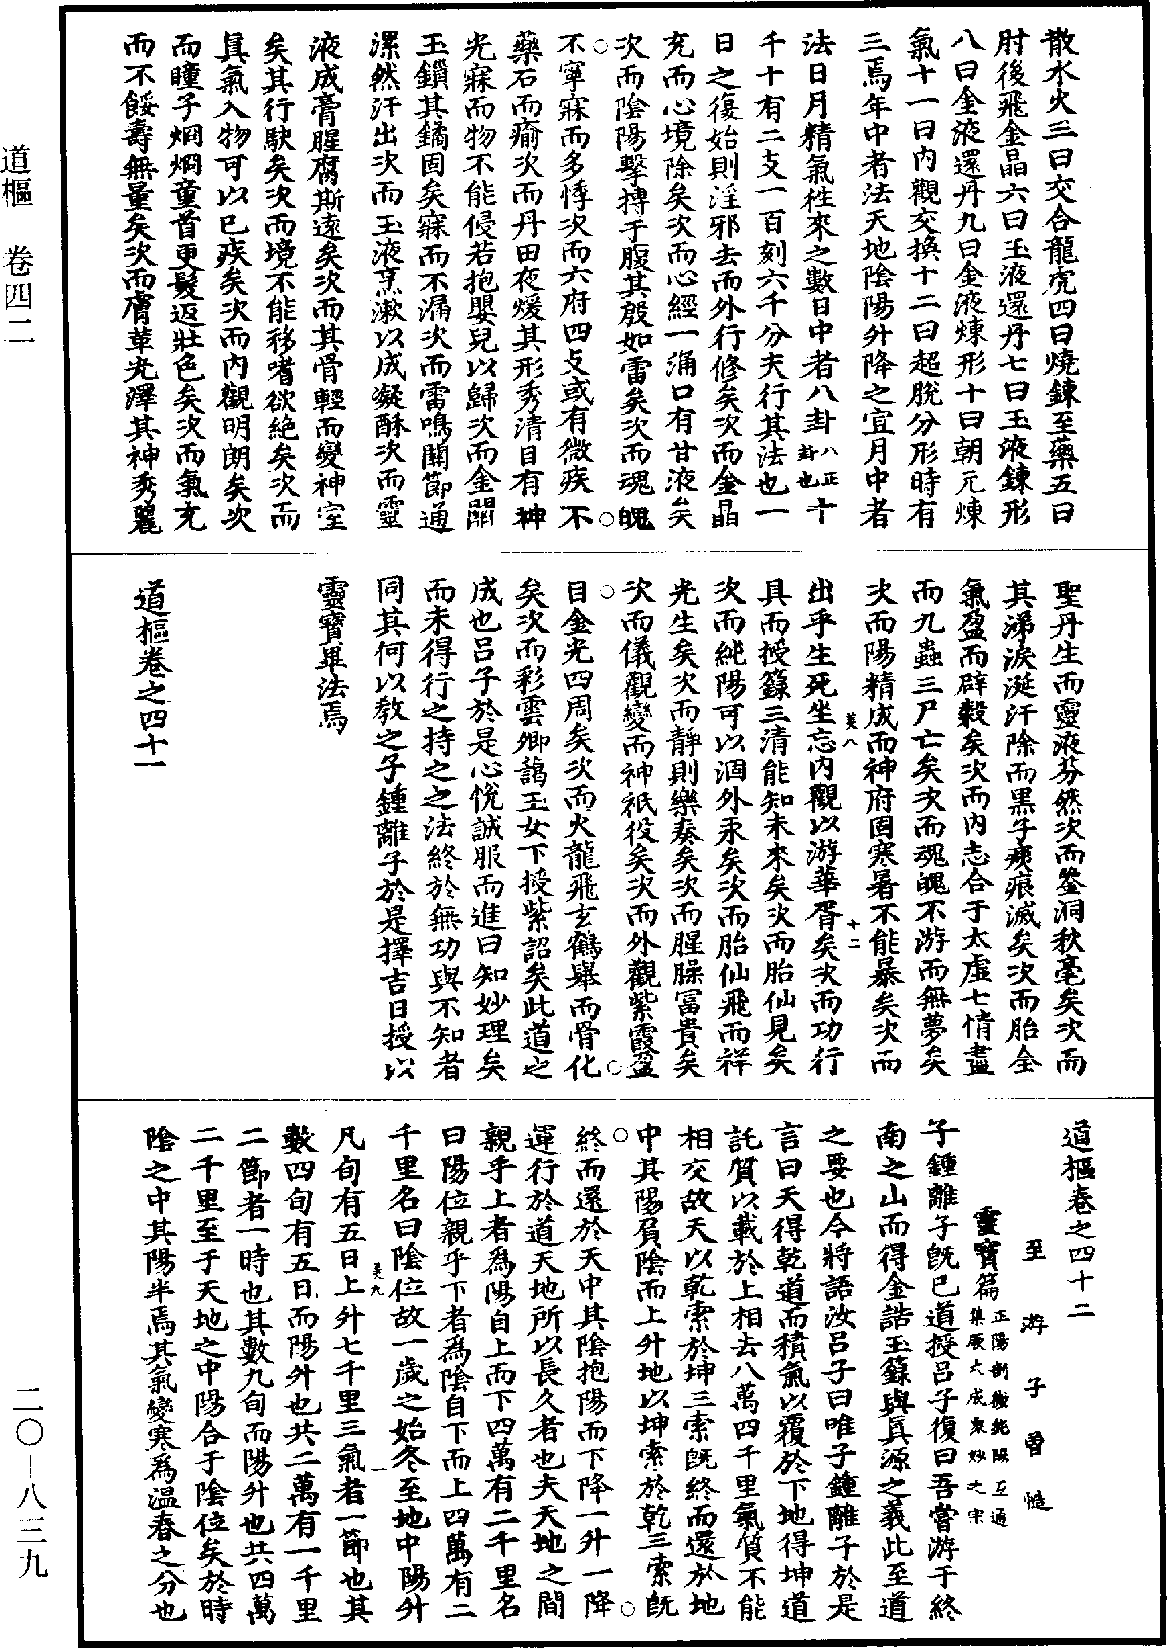 散水火三曰交合龍虎四曰燒鍊至藥五曰
肘後飛金晶六曰玉液還丹七曰玉液鍊形
八曰金液還丹九曰金液煉形十曰朝元煉
氣十一曰內觀交換十二曰超脫分形時有
三焉年中者法天地陰陽升降之宜月中者
法日月精氣往來之數日中者八卦八正卦也十
千十有二支一百刻六千分夫行其法也一
日之復始則淫邪去而外行修矣次而金晶
充而心境除矣次而心經一涌口有甘液矣
次而陰陽擊搏于腹其殷如雷矣次而魂魄
不寧寐而多悸次而六府四支或有微疾不
藥石而瘉次而丹田夜煖其形秀清目有神
光寐而物不能侵若抱嬰兒以歸次而金關
玉鎖其鐍固矣寐而不漏次而雷鳴關節通
漯然汗出次而玉液烹漱以成凝酥次而靈
液成膏腥腐斯遠矣次而其骨輕而變神室
矣其行駃矣次而境不能移嗜欲絕矣次而
真氣入物可以已疾矣次而內觀明朗矣次
而瞳子烱烱童首更髮返壯色矣次而氣充
而不餒壽無量矣次而膚革光澤其神秀麗
聖丹生而靈液芬然次而鑒洞秋毫矣次而
其涕淚涎汗除而黑子瘢痕滅矣次而胎全
氣盈而辟穀矣次而內志合于太虛七情盡
而九蟲三尸亡矣次而魂魄不游而無夢矣
次而陽精成而神府固寒暑不能暴矣次而
美八
十二
出乎生死坐忘內觀以游華胥矣次而功行
具而授籙三清能知未來矣次而胎仙見矣
次而純陽可以涸外汞矣次而胎仙飛而祥
光生矣次而靜則樂奏矣次而腥臊富貴矣
次而儀觀變而神祇役矣次而外觀紫霞盈
目金光四周矣次而火龍飛玄鶴舉而骨化
矣次而彩雲卿藹玉女下授紫詔矣此道之
成也呂子於是心悅誠服而進曰知妙理矣
而未得行之持之之法終於無功與不知者
同其何以教之子鍾離子於是擇吉日授以
靈寶畢法焉
道樞卷之四十一
道樞卷之四十二
至游子曾慥
靈寶篇正陽劃徵純陽互通集厥大成衆妙之宗
子鍾離子旣已道授呂子復曰吾嘗游于終
南之山而得金誥玉籙與真源之義此至道
之要也今將語汝呂子曰唯子鍾離子於是
言曰天得乾道而積氣以覆於下地得坤道
託質以載於上相去八萬四千里氣質不能
相交故天以乾索於坤三索旣終而還於地
中其陽負陰而上升地以坤索於乾三索旣
終而還於天中其陰抱陽而下降一升一降
運行於道天地所以長久者也夫天地之間
親乎上者為陽自上而下四萬有二千里名
曰陽位親乎下者為陰自下而上四萬有二
千里名曰陰位故一歲之始冬至地中陽升
美九
一
凡旬有五日上升七千里三氣者一節也其
數四旬有五日而陽升也共二萬有一千里
二節者一時也其數九旬而陽升也共四萬
二千里至于天地之中陽合于陰位矣於時
陰之中其陽半焉其氣變寒為溫春之分也
道樞 卷四二
二〇－八三九